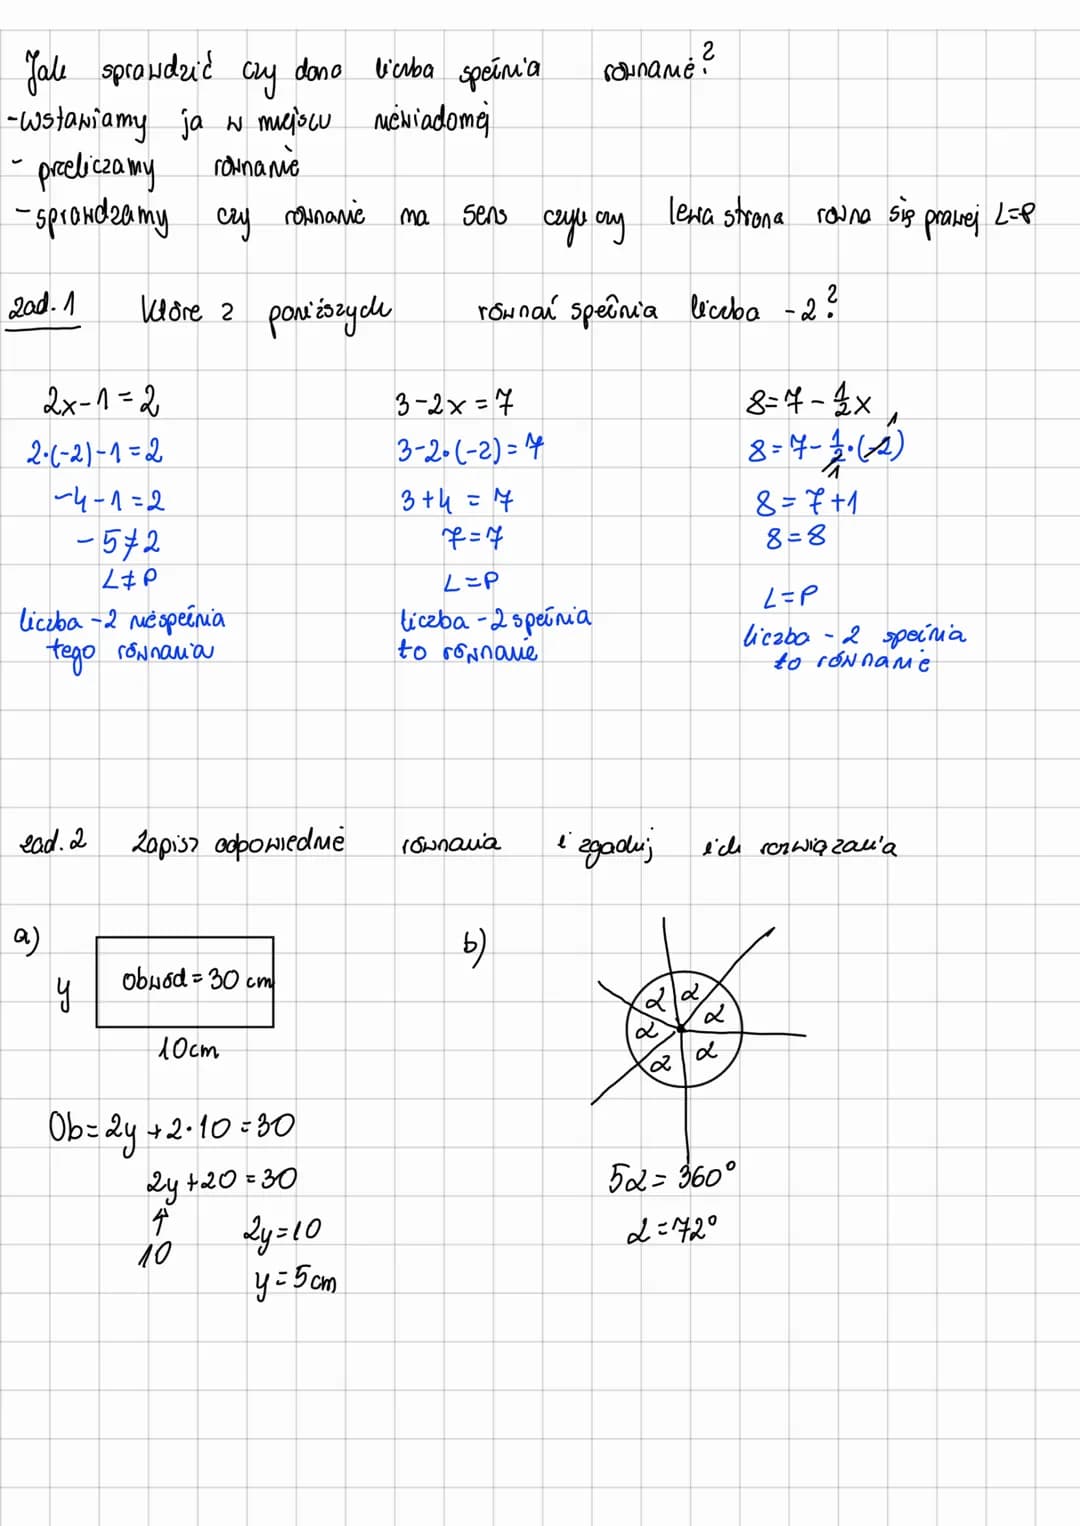 Jak sprawdzić czy dana liczba spełnia równanie?
-wstawiamy ja w miejscu niewiadomej
- przeliczamy równanie
- sprawdzamy czy równanie ma sens czyli czy lewa strona równa się prawej L=P
zad. 1 Które z poniższych równań spełnia liczba -2?
2x-1=2 3-2x=7 8=7-½x
2·(-2)-1=2 3-2·(-2)=7 8=7-½·(-2)
1
1
-4-1=2 3+4=7 8=7+1
-5≠2 7=7 8=8
L≠P L=P L=P
liczba -2 nie spełnia liczba -2 spełnia liczba -2 spełnia
tego równania to równanie to równanie
zad. 2 Zapisz odpowiednie równania i zgadnij ich rozwiązania
a) b)
y Obwód = 30 cm
10cm
α α
α α
α α
Ob=2y+2·10=30
2y+20=30 5α=360°
↑ 2y=10 α=72°
10
y=5cm